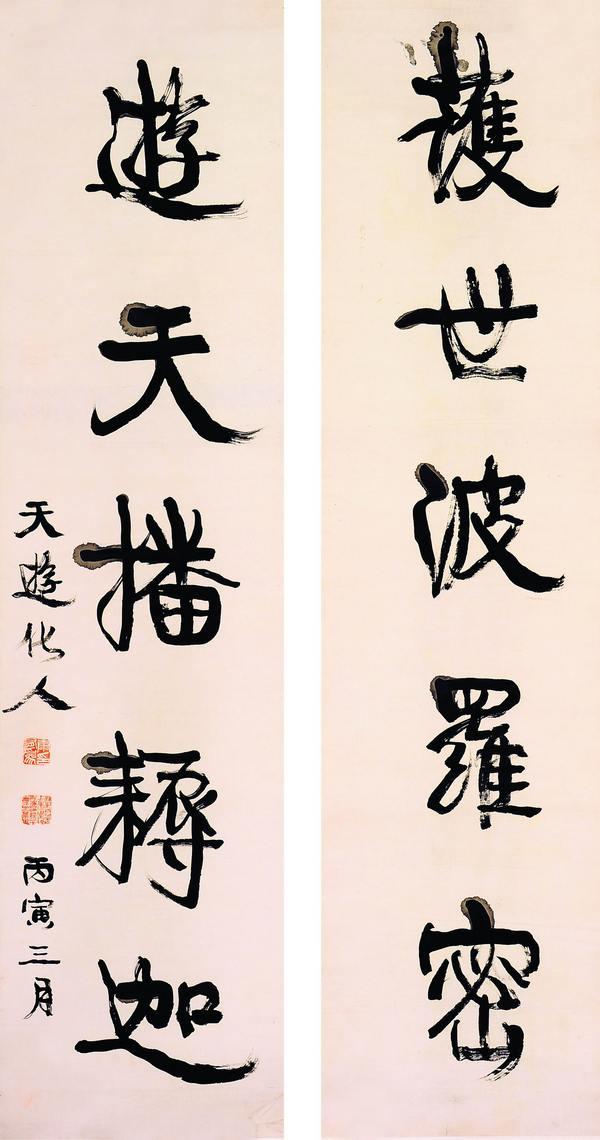 護世波羅密
遊天播耨迦
天遊化人
丙寅三月